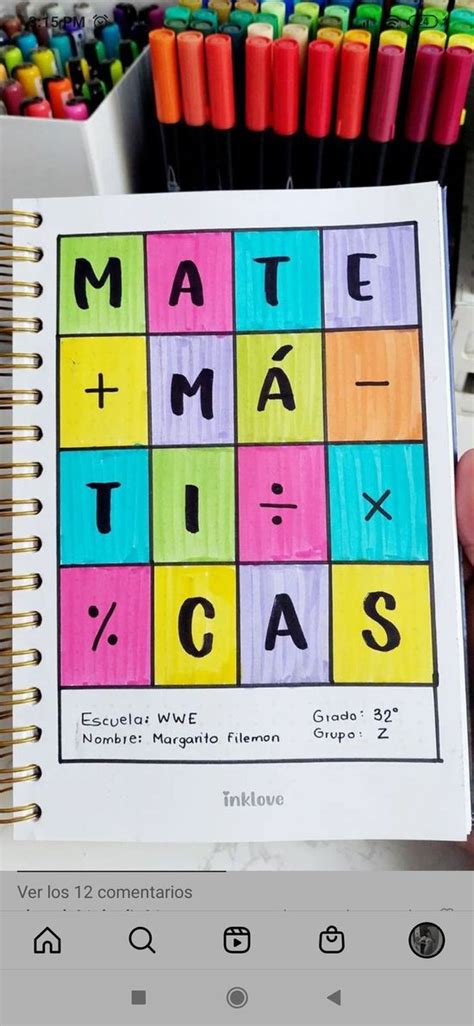 3:15 PM
24
M A T E
+ M Á −
T I ÷ ×
% C A S
Escuela: WWE
Grado: 32°
Nombre: Margarito Filemon
Grupo: Z
inklove
Ver los 12 comentarios